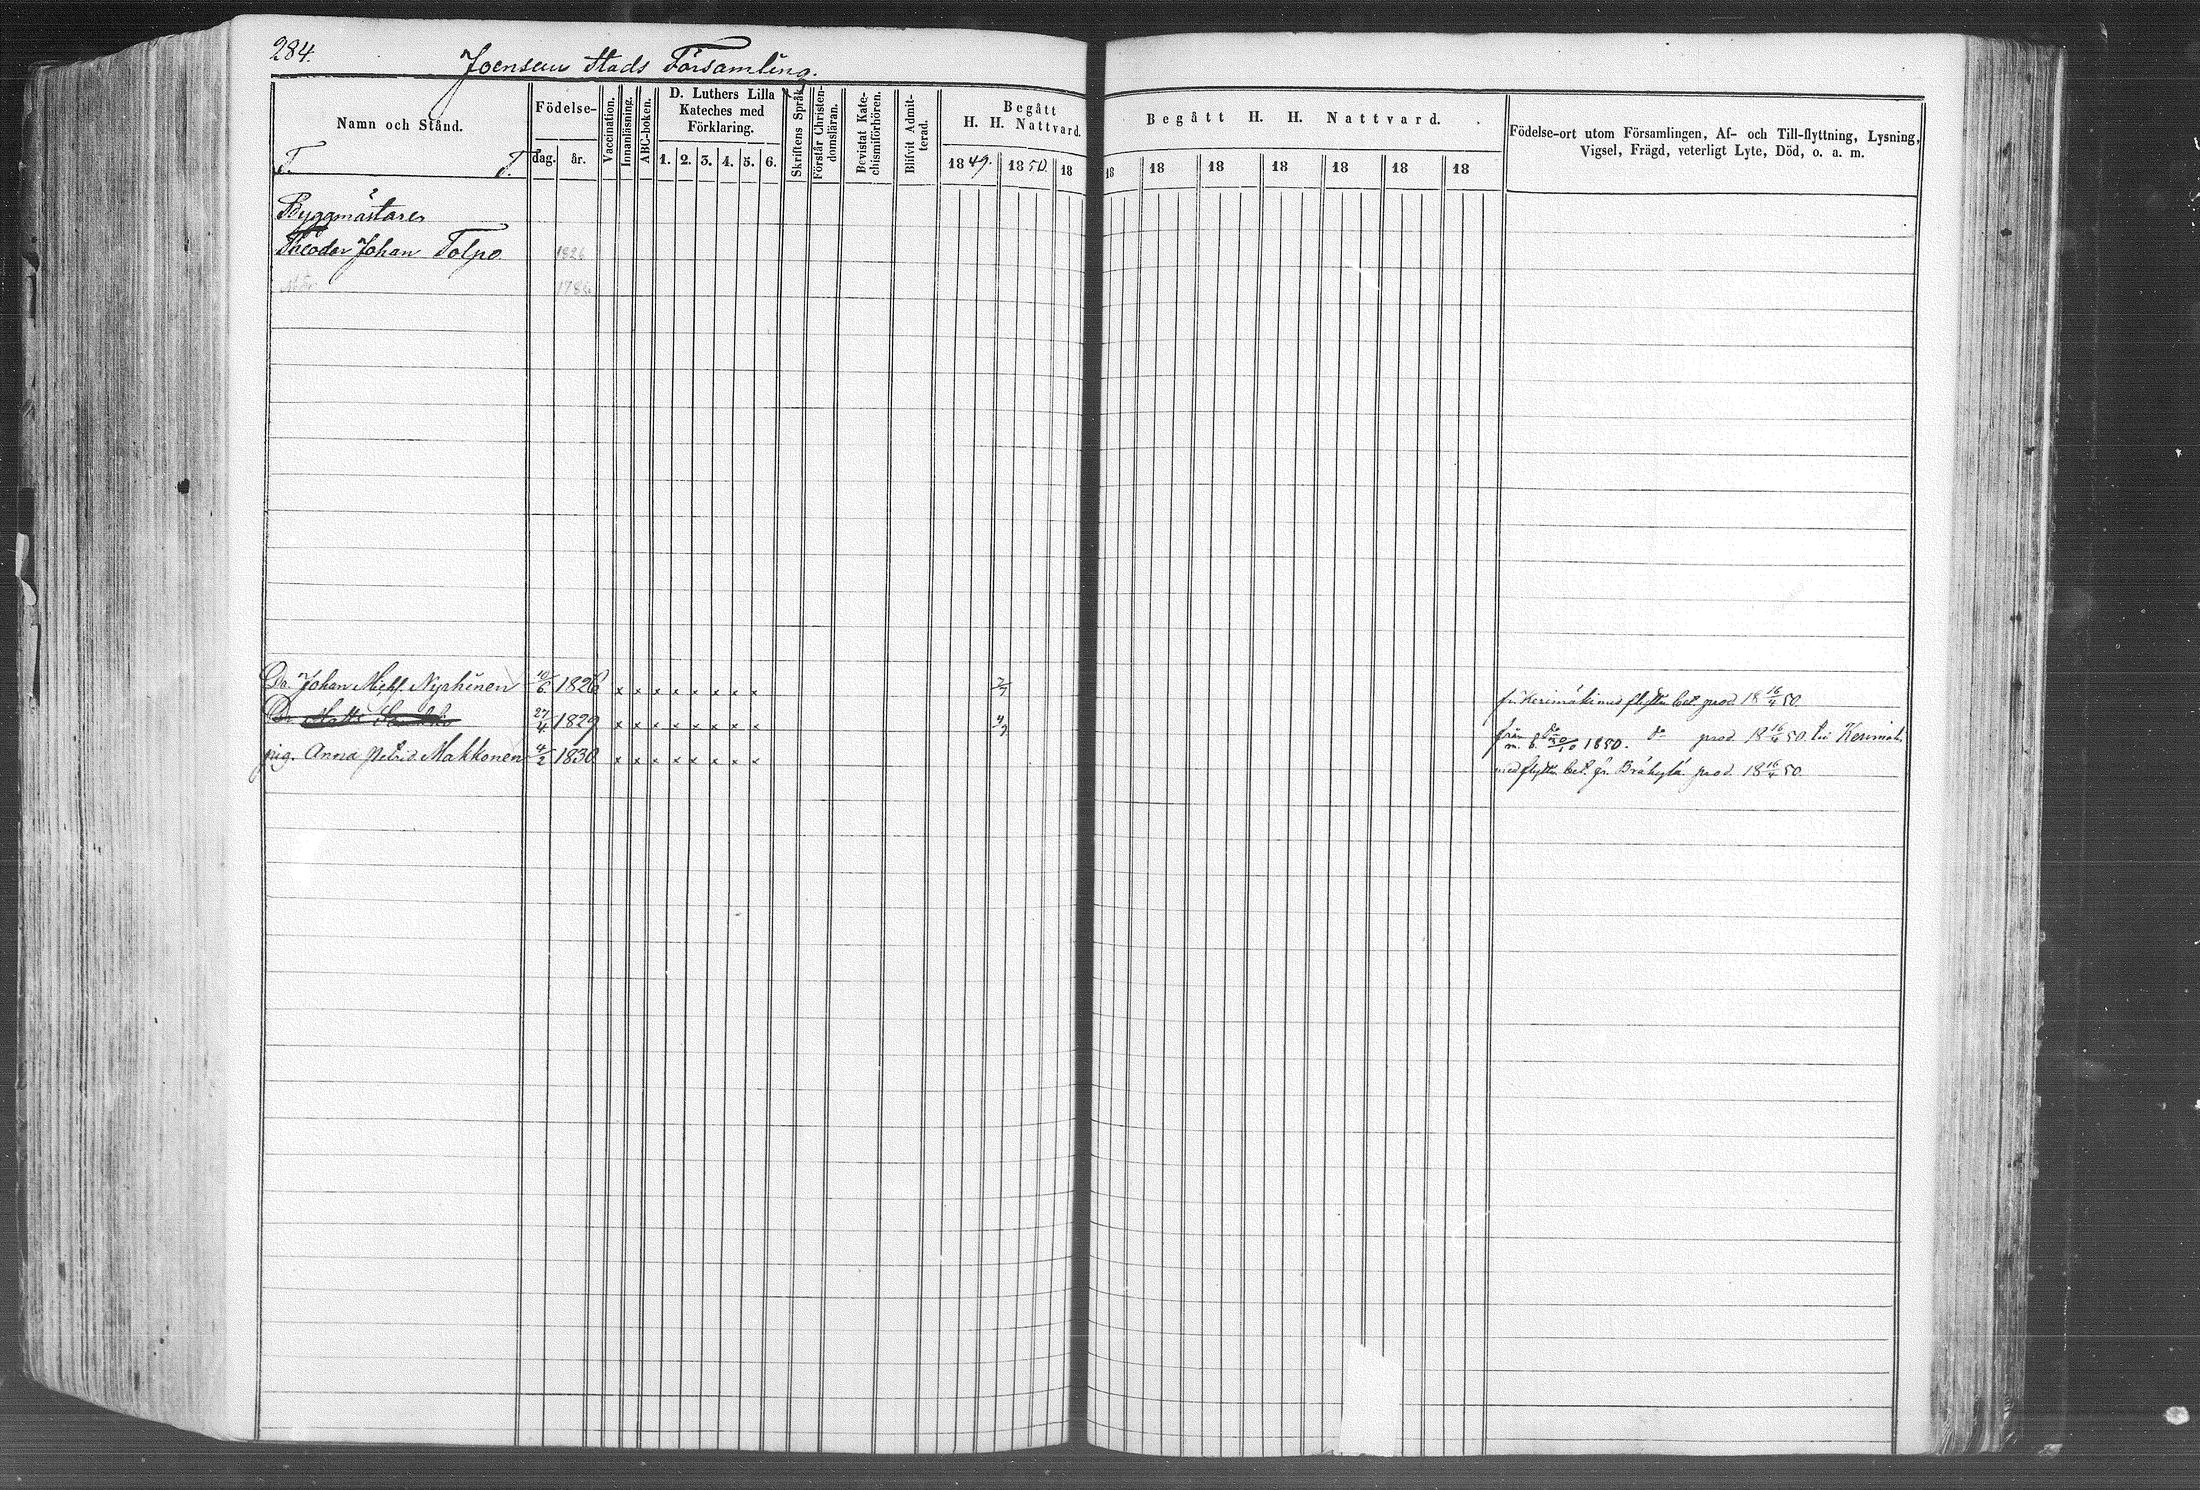 284.
Joensuu Stads Församling.
Namn och Stånd.
T. T.
Födelse-
dag. år.
Vaccination.
Innanläsning.
ABC-boken.
D. Luthers Lilla
Kateches med
Förklaring.
1. 2. 3. 4. 5. 6.
Skriftens Språk.
Förstår Christen-
domsläran.
Bevistat Kate-
chismiförhören.
Blifvit Admit-
terad.
Begått
H. H. Nattvard.
1849. 1850. 18
Begått H. H. Nattvard.
18 18 18 18 18 18 18
Födelse-ort utom Församlingen, Af- och Till-flyttning, Lysning,
Vigsel, Frägd, veterligt Lyte, Död, o. a. m.
Byggmästaren
Theodor Johan Tolpo 1826
1786
Dr. Johan Mich. 10/6 1826 x x x x x x x x 7/7 fr. Kerimäki med flyttn. bet. prod. 18 16/4 50.
Dr. Matts 27/4 1829 x x x x x x x x 4/7 från do do prod. 18 16/4 50. till Kerimäki
m. b. 1850.
pig. Anna Petrid. Makkonen 4/2 1830 x x x x x x x x med flyttn. bet. fr. Bräkylä prod. 18 16/4 50.